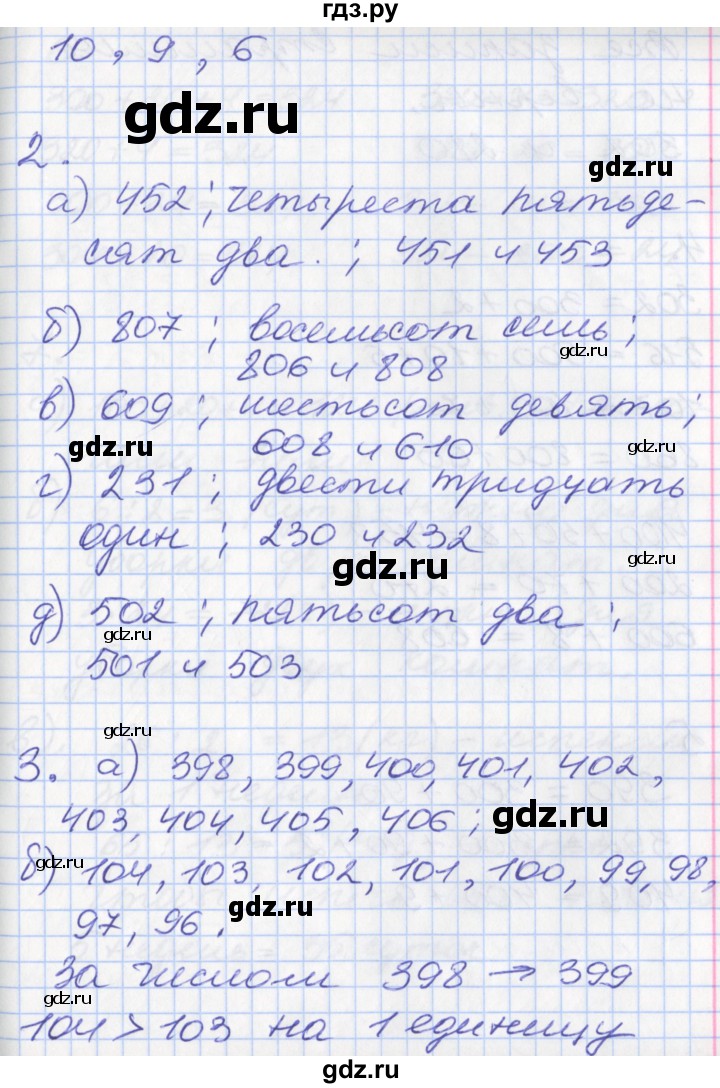 гдз.ру
10, 9, 6
gdz.ru
2.
gdz.ru
а) 452; четыреста пятьде-
сят два.; 451 и 453
б) 807; восемьсот семь;
gdz.ru
806 и 808
в) 609; шестьсот девять;
gdz.ru
608 и 610
gdz.ru
г) 231; двести тридцать
один; 230 и 232
gdz.ru
gdz.ru
д) 502; пятьсот два;
gdz.ru
501 и 503
gdz.ru
3. а) 398, 399, 400, 401, 402,
403, 404, 405, 406;
gdz.ru
gdz.ru
б) 104, 103, 102, 101, 100, 99, 98,
97, 96.
gdz.ru
За числом 398 → 399
gdz.ru
104 > 103 на 1 единицу
gdz.ru